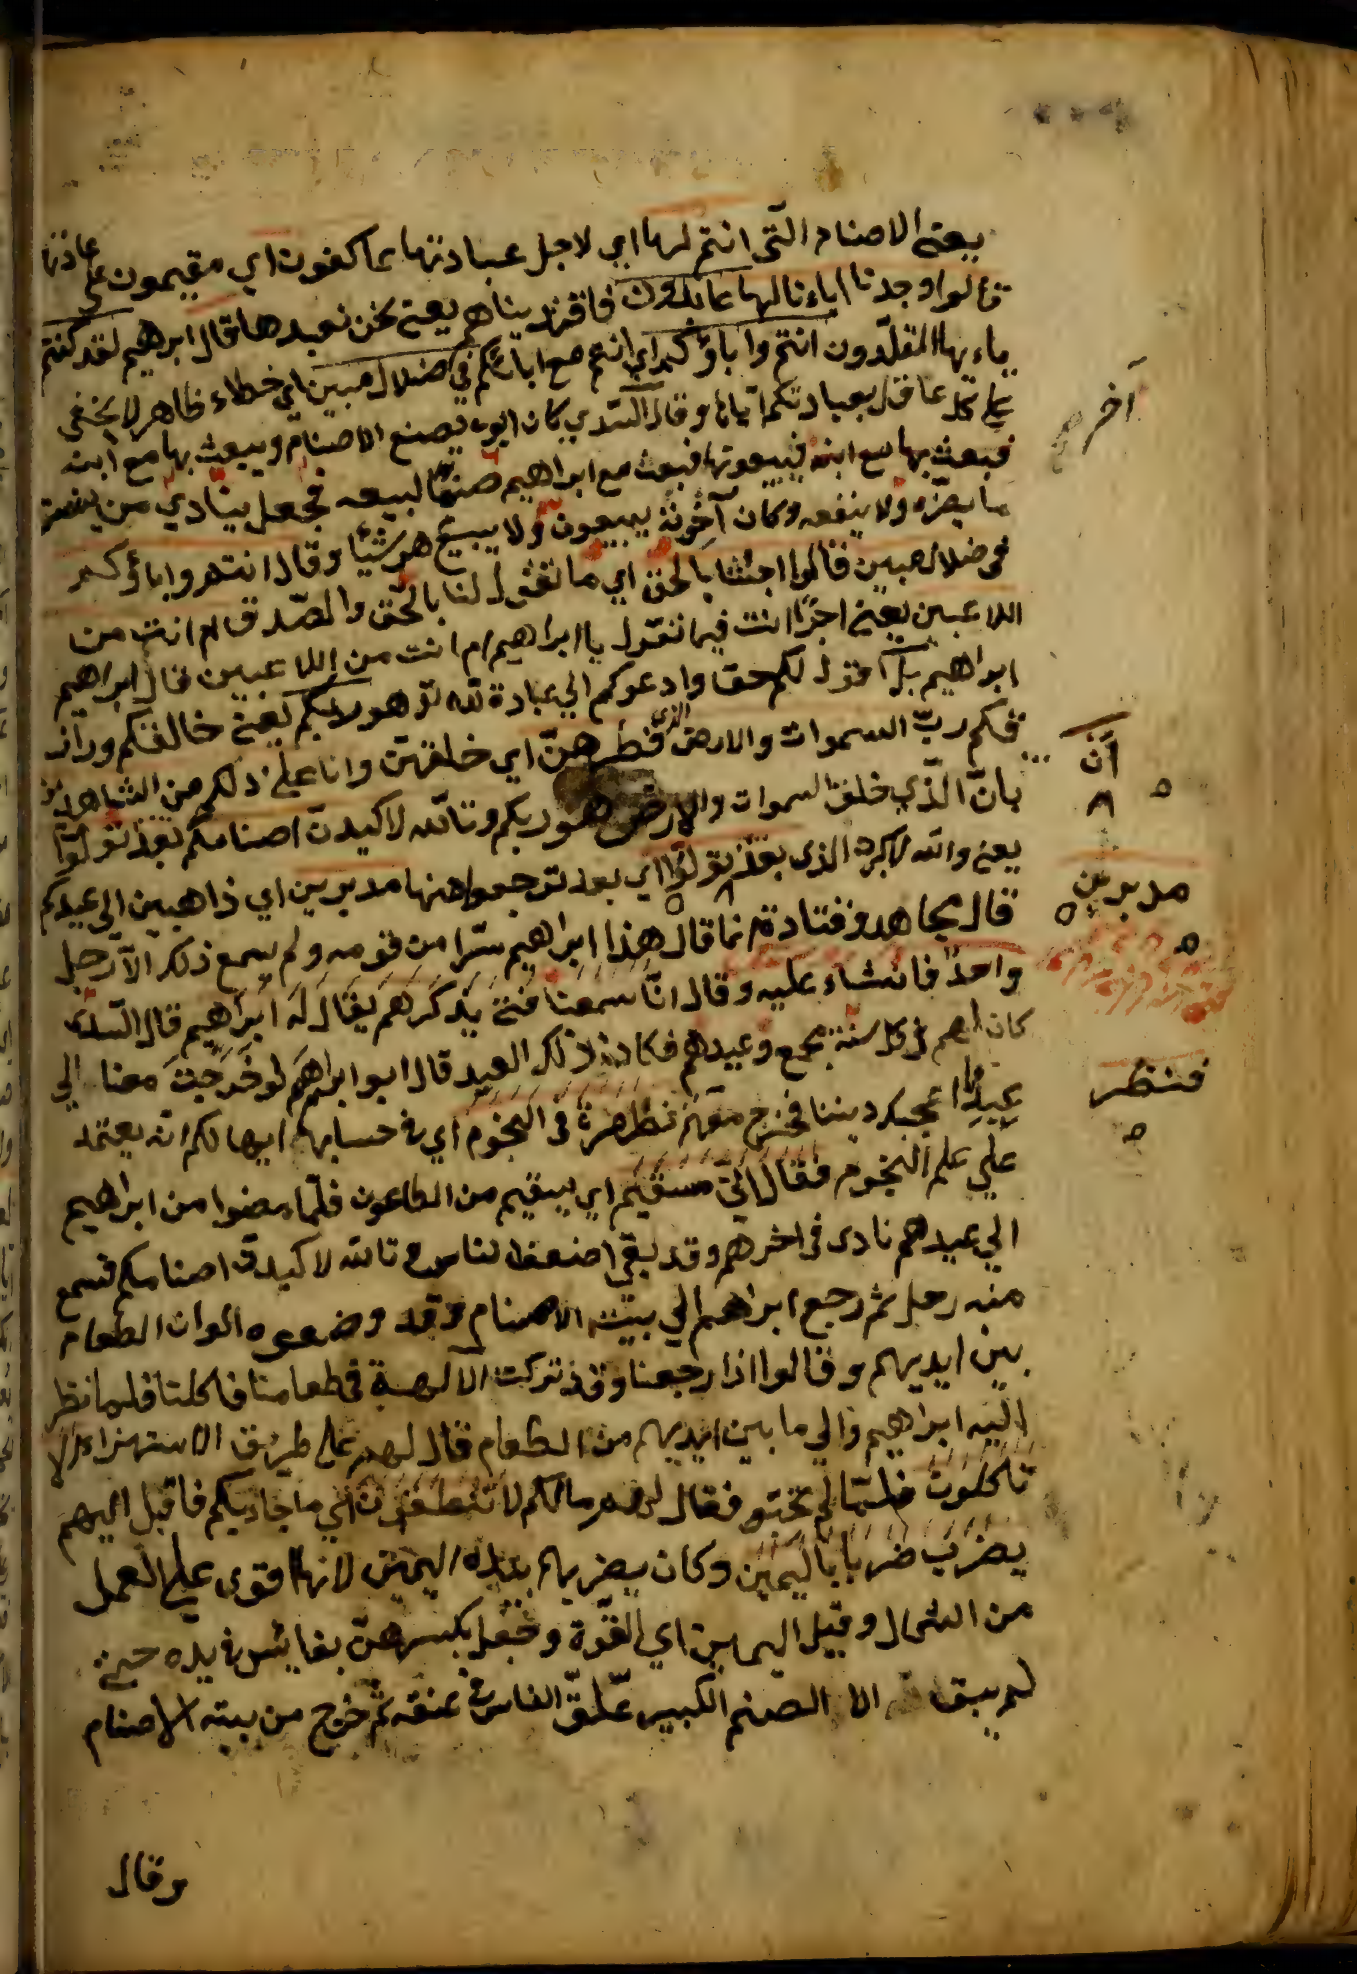 يعني الاصنام الّتي انتم لها اي لاجل عبادتها عاكفون اي مقيمون علي عبادتها
قالوا وجدنا اباءنا لها عابدون فاقتدينا هم يعني نحن نعبدها قال ابراهيم لقد كنتم
ياءيها المقلّدون انتم واباؤكم اي انتم مع ابائكم في ضلال مبين اي خطاء ظاهر لا يخفي
علي كل عاقل بعبادتكم ايّاها وقال السّدي كان ابوه يصنع الاصنام ويبعث بها مع ابنه
فبعث بها مع ابنه فيبيعونها فبعث مع ابراهيم صنمًا لبيعه فجعل ينادي من يشتر
ما يضرّه ولا ينفعه وكان آخوته يبيعون ولا يبيع هو شيًا وقال انتم واباؤكم
في ضلال مبين فقالوا اجئتنا بالحق اي ما تقول لنا بالحّق والصّدق ام انت من
اللاعبين يعني اجدًّا انت فيما تقول يا ابراهيم ام انت من اللاعبين قال ابراهيم
ابراهيم بل اقول لكم حقا وادعوكم الي عبادة لله هو يعني خالقكم ورازقكم
فكم ربّ السموات والارض الذي فطرهنّ اي خلقهنّ وانا علي ذلكم من الشاهدين
بانّ الّذي خلق السموات والارض هو ربكم وتالله لاكيدنّ اصنامكم بعد ان تولّوا
يعني والله الذي بعد تولّوا اي بعد ترجعوا منها مدبرين اي ذاهبين الي عيدكم
قال مجاهد وقتادة انما قال هذا ابراهيم سّرا من قومه ولم يسمع ذلك الاّ رجل
واحدا فافشاء عليه وقال انّا سمعنا فتي يذكرهم يقال له ابراهيم قال السّدي
كان لهم في كل سنة مجمع وعيدهم فكان ذلك العيد قال ابو ابراهيم لو خرجت معنا الي
عيدنا اعجبك ديننا فخرج معهم نظرة في النجوم اي في حسابها ايهالكم انه يعتمد
علي علم النجوم فقال انّي سقيم اي سقيم من الطاعون فلمّا مضوا من ابراهيم
الي عيدهم نادي في اخرهم وقد بقي اضعفا لناس تالله لاكيدن اصنامكم فسمع
منه رجل ثم رجع ابراهيم الي بيت الاصنام وقد وضعوه الوان الطعام
بين ايديهم وقالوا اذا رجعنا وقد تركت الالهة في طعامنا فاكلنا فلما نظر
اليه ابراهيم والي ما بين ايديهم من الطعام قال لهم علي طريق الاستهزاء الا
تاكلون فلمّا لم فقال لهم مالكم لا تنطقون اي ما جاذبكم فاقبل اليهم
يضرب ضربا باليمين وكان يضربهم بيده اليمني لانها اقوي علي العمل
من الشمال وقيل اليمين اي القوّة وجعل يكسرهنّ بفائس في يده حتي
لم يبق الا الصنم الكبير علّق الفاس في عنقه ثم خرج من بيت الاصنام
وقال
آخر
أن
مدبرين
فنظر